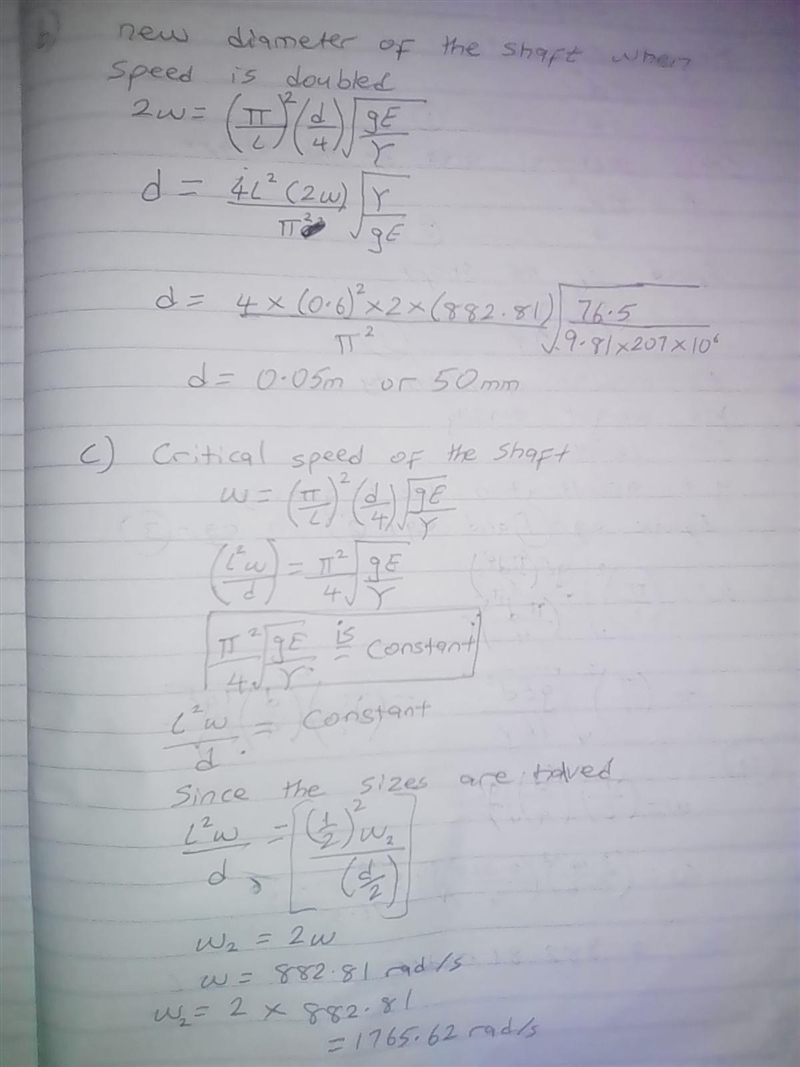 b) new diameter of the shaft when
speed is doubled
2w = (π/L)² (d/4) √(gE/γ)
d = 4L² (2w)/π² √(γ/gE)
d = 4 × (0.6)² × 2 × (882.81)/π² √(76.5/9.81×207×10⁶)
d = 0.05m or 50mm
c) Critical speed of the shaft
w = (π/L)² (d/4) √(gE/γ)
(L²w/d) = π²/4 √(gE/γ)
π²/4 √(gE/γ) is constant
L²w/d = constant
Since the sizes are halved
L²w/d = [(1/2)² w₂/(d/2)]
w₂ = 2w
w = 882.81 rad/s
w₂ = 2 × 882.81
= 1765.62 rad/s